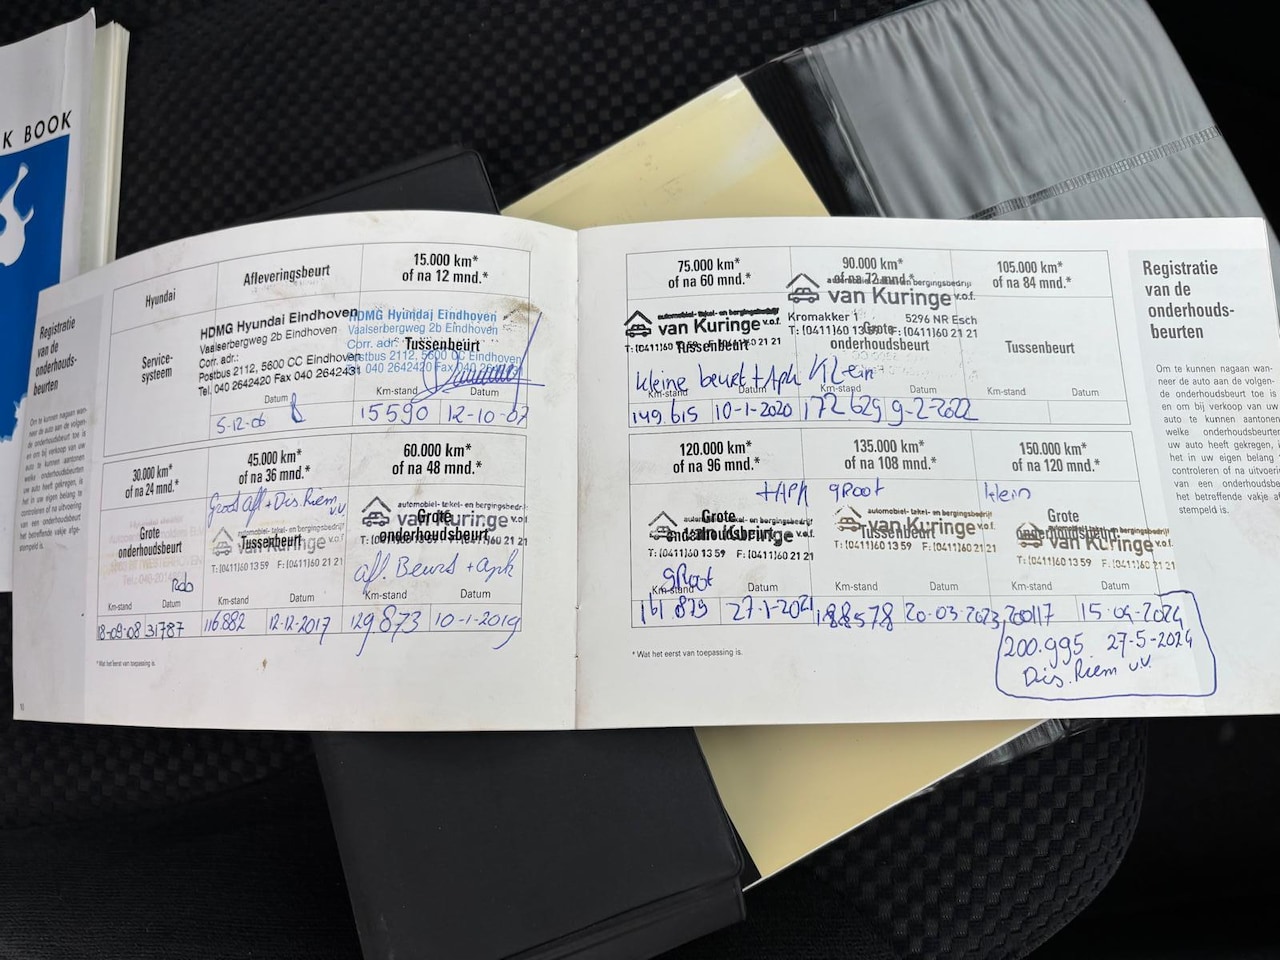 K BOOK
Registratie
van de
onderhouds-
beurten
Om te kunnen nagaan wan-
neer de auto aan de volgen-
de onderhoudsbeurt toe is
Hyundai
Afleveringsbeurt
15.000 km*
of na 12 mnd.*
Service-
systeem
HDMG Hyundai Eindhoven
Vaalserbergweg 2b Eindhoven
Corr. adr.:
Postbus 2112, 5600 CC Eindhoven
Tel. 040 2642420 Fax 040 2642431
Datum
5-12-06
HDMG Hyundai Eindhoven
Vaalserbergweg 2b Eindhoven
Corr. adr.:
Tussenbeurt
Postbus 2112, 5600 CC Eindhoven
Km-stand
Datum
15590
12-10-07
30.000 km*
of na 24 mnd.*
Grote
onderhoudsbeurt
Rob
Km-stand
Datum
18-09-08
31787
45.000 km*
of na 36 mnd.*
Groot afl + Dis. Riem v.v
automobiel- takel- en bergingsbedrijf
van Kuringe
Tussenbeurt
T: (0411)60 13 59 F: (0411)60 21 21
Km-stand
Datum
116882
12-12-2017
60.000 km*
of na 48 mnd.*
automobiel- takel- en bergingsbedrijf
van Kuringe v.o.f.
Grote
onderhoudsbeurt
T: (0411)60 13 59 F: (0411)60 21 21
afl. Beurt + apk
Km-stand
Datum
129873
10-1-2019
* Wat het eerst van toepassing is.
75.000 km*
of na 60 mnd.*
automobiel- takel- en bergingsbedrijf
van Kuringe v.o.f.
Tussenbeurt
T: (0411)60 13 59 F: (0411)60 21 21
kleine beurt + Apk
Km-stand
Datum
149.615
10-1-2020
90.000 km*
of na 72 mnd.*
automobiel- takel- en bergingsbedrijf
van Kuringe v.o.f.
Kromakker 1 5296 NR Esch
T: (0411)60 13 59 F: (0411)60 21 21
Grote
onderhoudsbeurt
Klein
Km-stand
Datum
172 629
9-2-2022
105.000 km*
of na 84 mnd.*
Tussenbeurt
Km-stand
Datum
120.000 km*
of na 96 mnd.*
+Apk
Grote
onderhoudsbeurt
automobiel- takel- en bergingsbedrijf
van Kuringe v.o.f.
T: (0411)60 13 59 F: (0411)60 21 21
gRoot
Km-stand
Datum
161 879
27-1-2021
135.000 km*
of na 108 mnd.*
gRoot
automobiel- takel- en bergingsbedrijf
van Kuringe v.o.f.
Tussenbeurt
T: (0411)60 13 59 F: (0411)60 21 21
Km-stand
Datum
188578
20-03-2023
150.000 km*
of na 120 mnd.*
klein
Grote
onderhoudsbeurt
automobiel- takel- en bergingsbedrijf
van Kuringe v.o.f.
T: (0411)60 13 59 F: (0411)60 21 21
Km-stand
Datum
200117
15-04-2024
200.995 27-5-2024
Dis. Riem v.v.
* Wat het eerst van toepassing is.
Registratie
van de
onderhouds-
beurten
Om te kunnen nagaan wan-
neer de auto aan de volgen-
de onderhoudsbeurt toe is
en om bij verkoop van uw
auto te kunnen aantonen
welke onderhoudsbeurten
uw auto heeft gekregen, is
het in uw eigen belang te
controleren of na uitvoering
van een onderhoudsbeurt
het betreffende vakje af-
stempeld is.